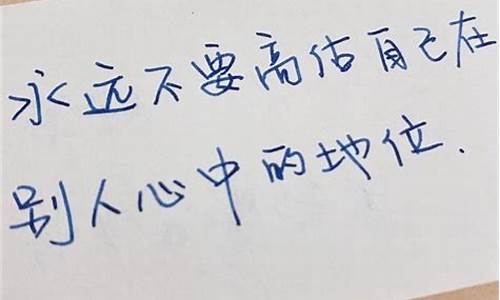 永远不要高估自己在
别人心中的地位.